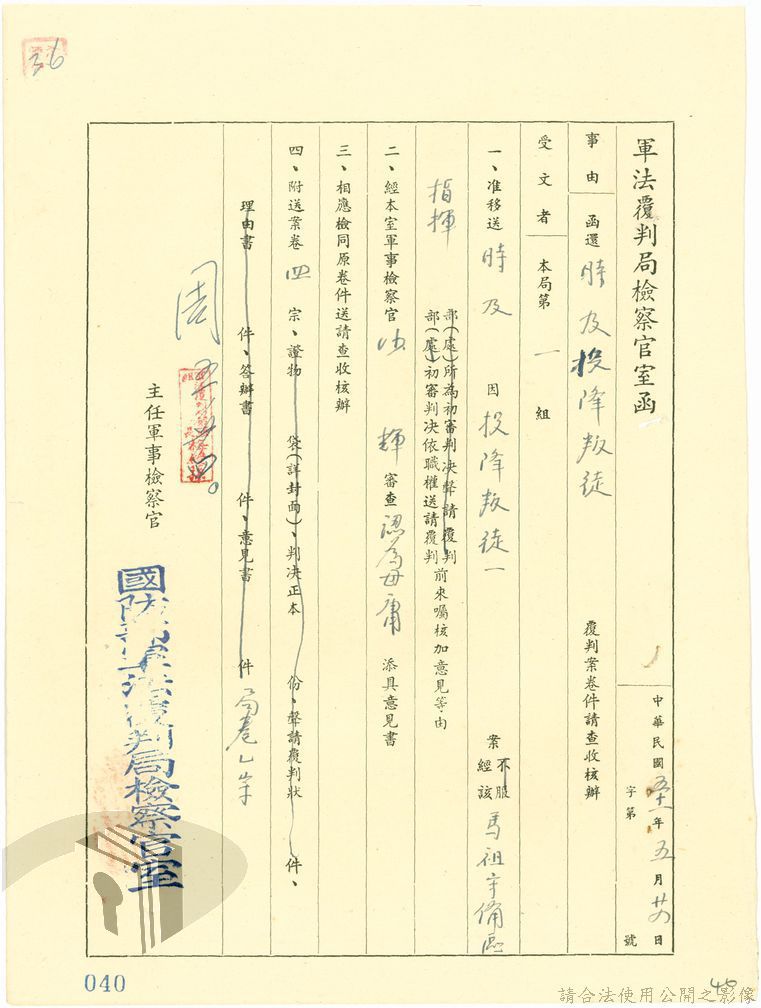 36
軍法覆判局檢察官室函
中華民國五十一年五月廿四日
字第 號
事由 函還時及投降叛徒 覆判案卷件請查收核辦
受文者 本局第一組
一、准移送時及 因投降叛徒一 案不服經該馬祖守備區
指揮部(處)所為初審判決聲請覆判部(處)初審判決依職權送請覆判前來囑核加意見等由
二、經本室軍事檢察官 輝審查認為毋庸添具意見書
三、相應檢同原卷件送請查收核辦
四、附送案卷四宗、證物 袋(詳封面)、判決正本 份、聲請覆判狀 件、
理由書 件、答辯書 件、意見書 件局卷乙宗
主任軍事檢察官
周
國防部軍法覆判局檢察官室
040
40
請合法使用公開之影像